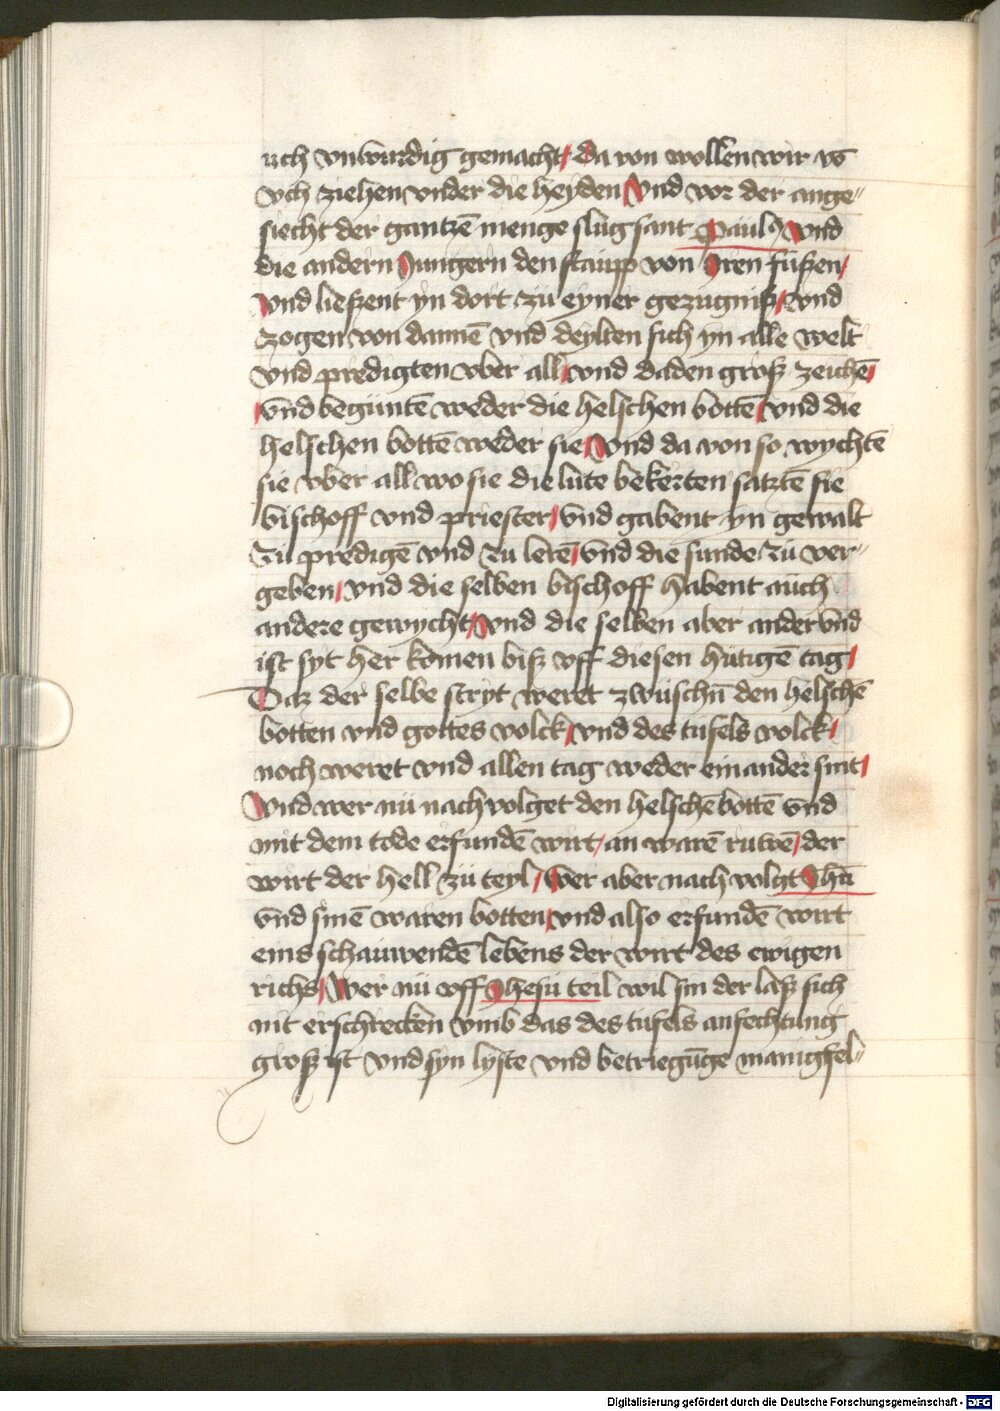 uch vnwurdig gemacht / da von wollen wir vs
vch ziehen vnder die heyden / Vnd vor der ange⸗
siecht der gantzē menge slug sant Paulꝰ Vnd
die andern Jungern den staupp von Jren fußen /
Vnd ließent yn dort zü eyner gezugniß / Vnd
zogen von dannē vnd deylten sich yn alle welt
vnd predigten vber all / vnd daden groß zeichē /
vnd begüntē weder die helschen bottē / vnd die
helschen bottē weder sie / Vnd da von so wychtē
sie vber all wo sie die lute bekerten satztē sie
bischoff vnd priester / vnd gabent yn gewalt
zu predigē vnd zu lerē / vnd die sunde zü ver⸗
geben / vnd die selben bischoff habent auch
andere gewycht / Vnd die selben aber ander vnd
ist syt her komen biß vff diesen hutigē tag /
Daz der selbe stryt weret zwüschn̄ den helschē
botten vnd gottes volck / vnd des tufels volck /
noch weret vnd allen tag weder einander sint /
Vnd wer nü nach volget den helschē bottē vnd
mit dem tode erfundē wirt / an warē ruwē / der
wirt der hell zü teyl / Wer aber nach volgt Jhū
vnd sinē waren botten / vnd also erfundē wirt
eins schauwendē lebens der wirt des ewigen
richs / Wer nü vff Jhesu teil wil sin der laß sich
nit erschrecken vmb das des tufels anfechtung
groß ist vnd syn lyste vnd betriegūge manigfel⸗
Digitalisierung gefördert durch die Deutsche Forschungsgemeinschaft - DFG